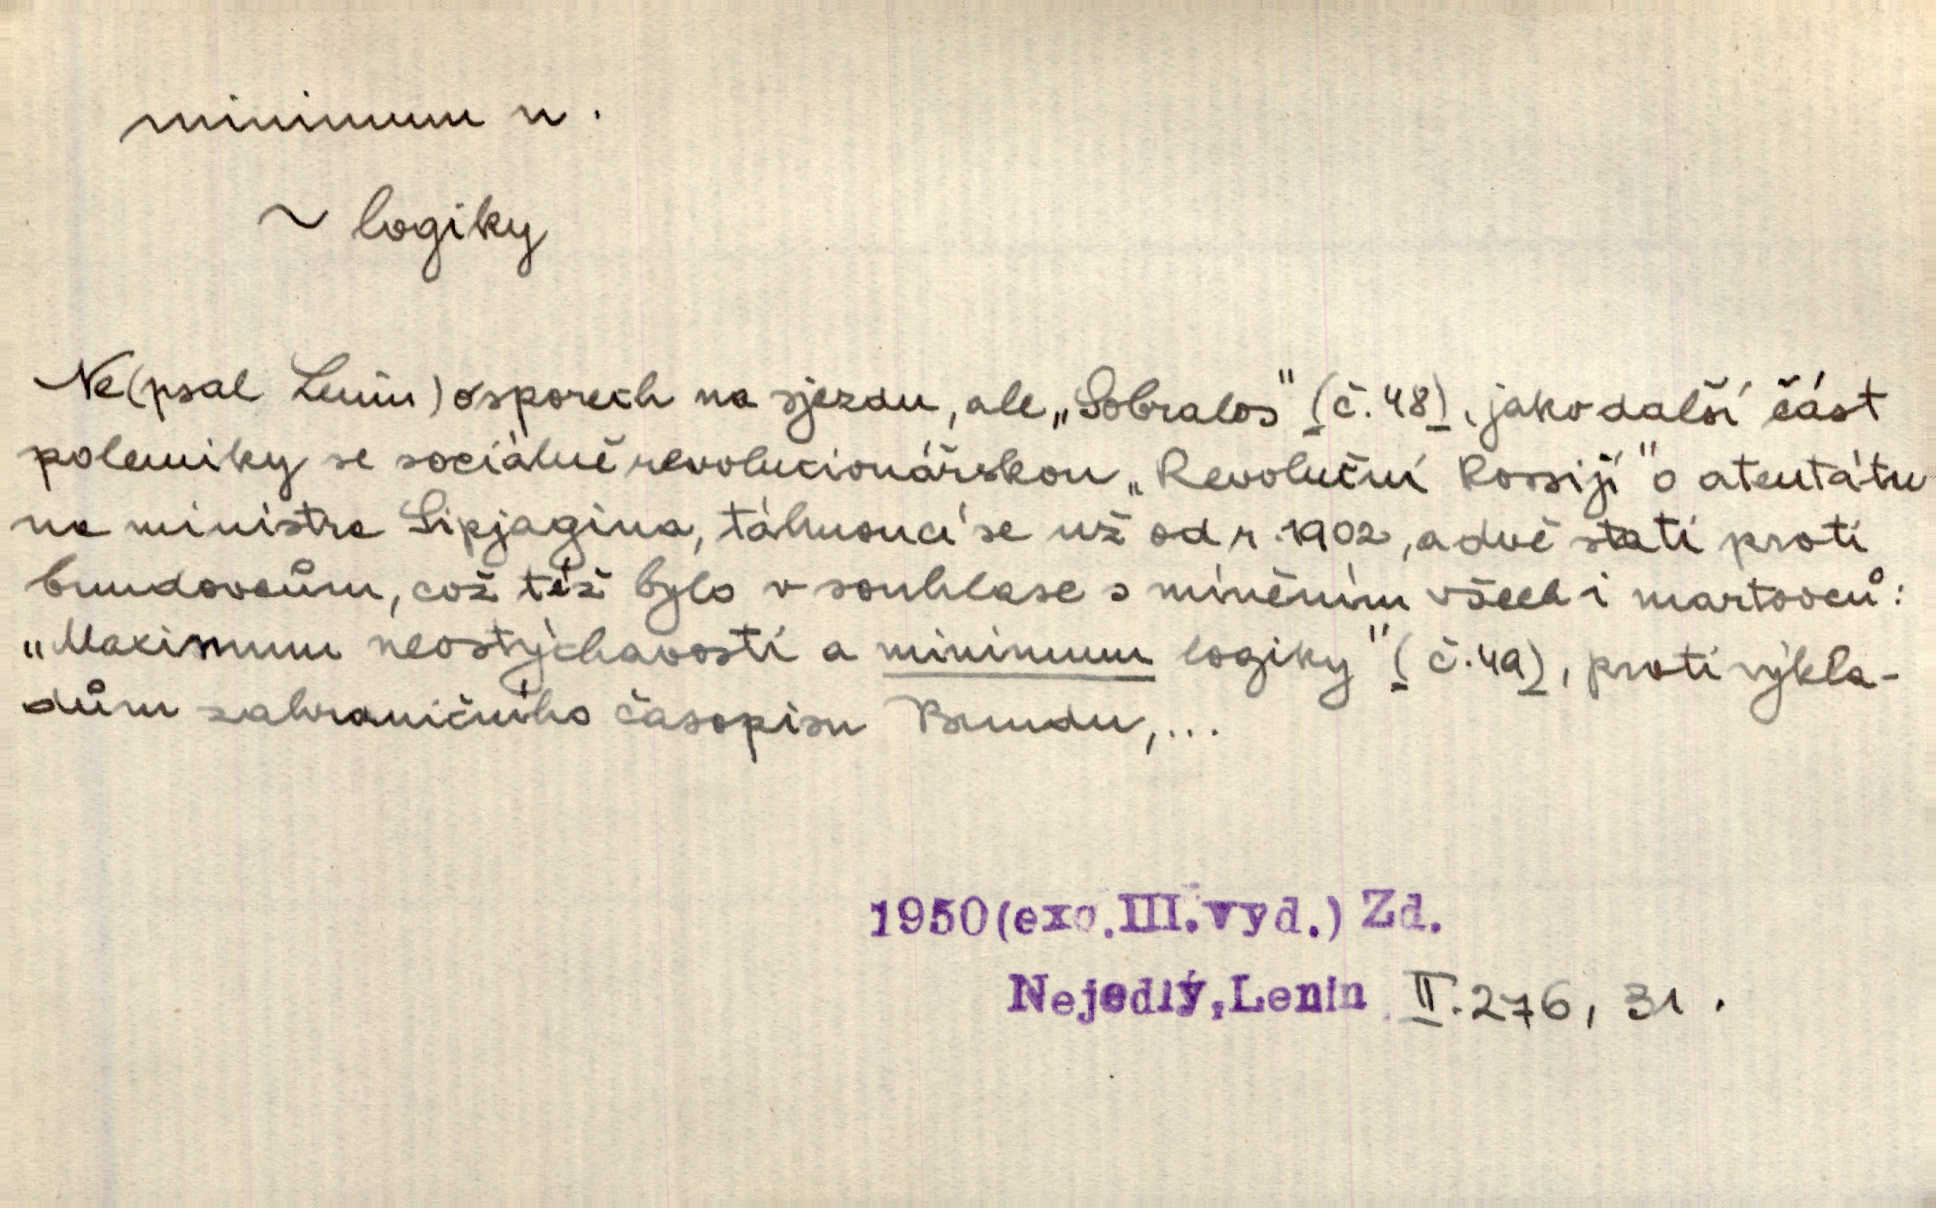 minimum n.
~ logiky
Ne(psal Lenin) o sporech na sjezdu, ale „Sobralos" (č.48), jako další část
polemiky se sociálně revolucionářskou „Revoluční Rossijí" o atentátu
na ministra Sipjagina, táhnoucí se už od r. 1902, a dvě stati proti
bundovcům, což též bylo v souhlase s míněním všech i martovců:
„Maximum neostýchavosti a minimum logiky" (č.49), proti výkla-
dům zahraničního časopisu Bundu,...
1950(exc.III.vyd.) Zd.
Nejedlý,Lenin II.276, 31.